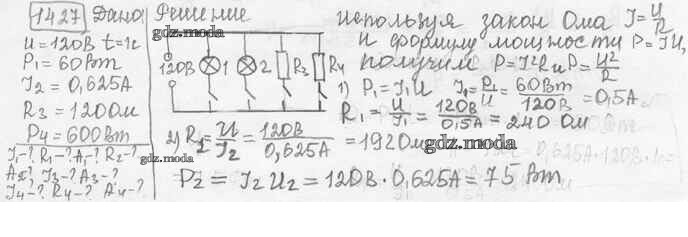 1427 Дано
U=120В t=1ч
P₁=60Вт
I₂=0,625А
R₃=120Ом
P₄=600Вт
I₁-? R₁-? A₁-? R₂-?
A₂? I₃-? A₃-?
I₄-? R₄-? A₄-?
gdz.moda
Решение
gdz.moda
120В 1 2 R₃ R₄
Используя закон Ома I=U/R
и формулу мощности P=IU,
получим P=I²R и P=U²/R
gdz.moda
1) P₁=I₁U I₁=P₁/U=60Вт/120В=0,5А
R₁=U/I₁=120В/0,5А=240 Ом
2) R₂=U/I₂=120В/0,625А=192Ом
gdz.moda
P₂=I₂U₂=120В·0,625А=75 Вт